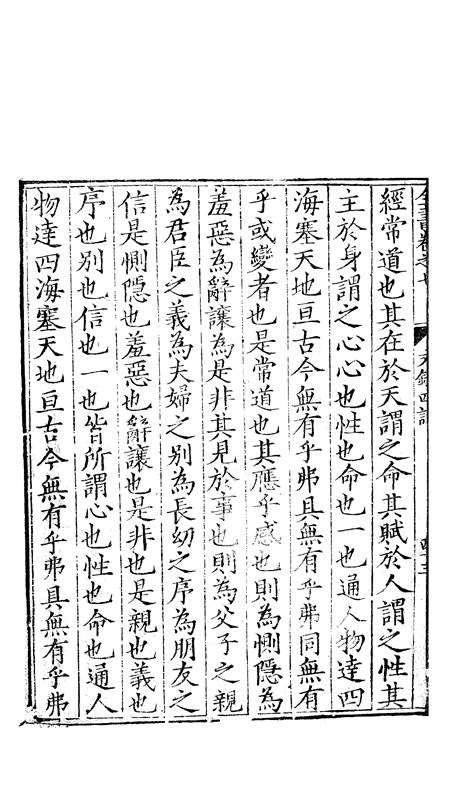 全書卷之七 文錄四 記
經常道也其在於天謂之命其賦於人謂之性其
主於身謂之心心也性也命也一也通人物達四
海塞天地亘古今無有乎弗具無有乎弗同無有
乎或變者也是常道也其應乎感也則為惻隱為
羞惡為辭讓為是非其見於事也則為父子之親
為君臣之義為夫婦之別為長幼之序為朋友之
信是惻隱也羞惡也辭讓也是非也是親也義也
序也別也信也一也皆所謂心也性也命也通人
物達四海塞天地亘古今無有乎弗具無有乎弗